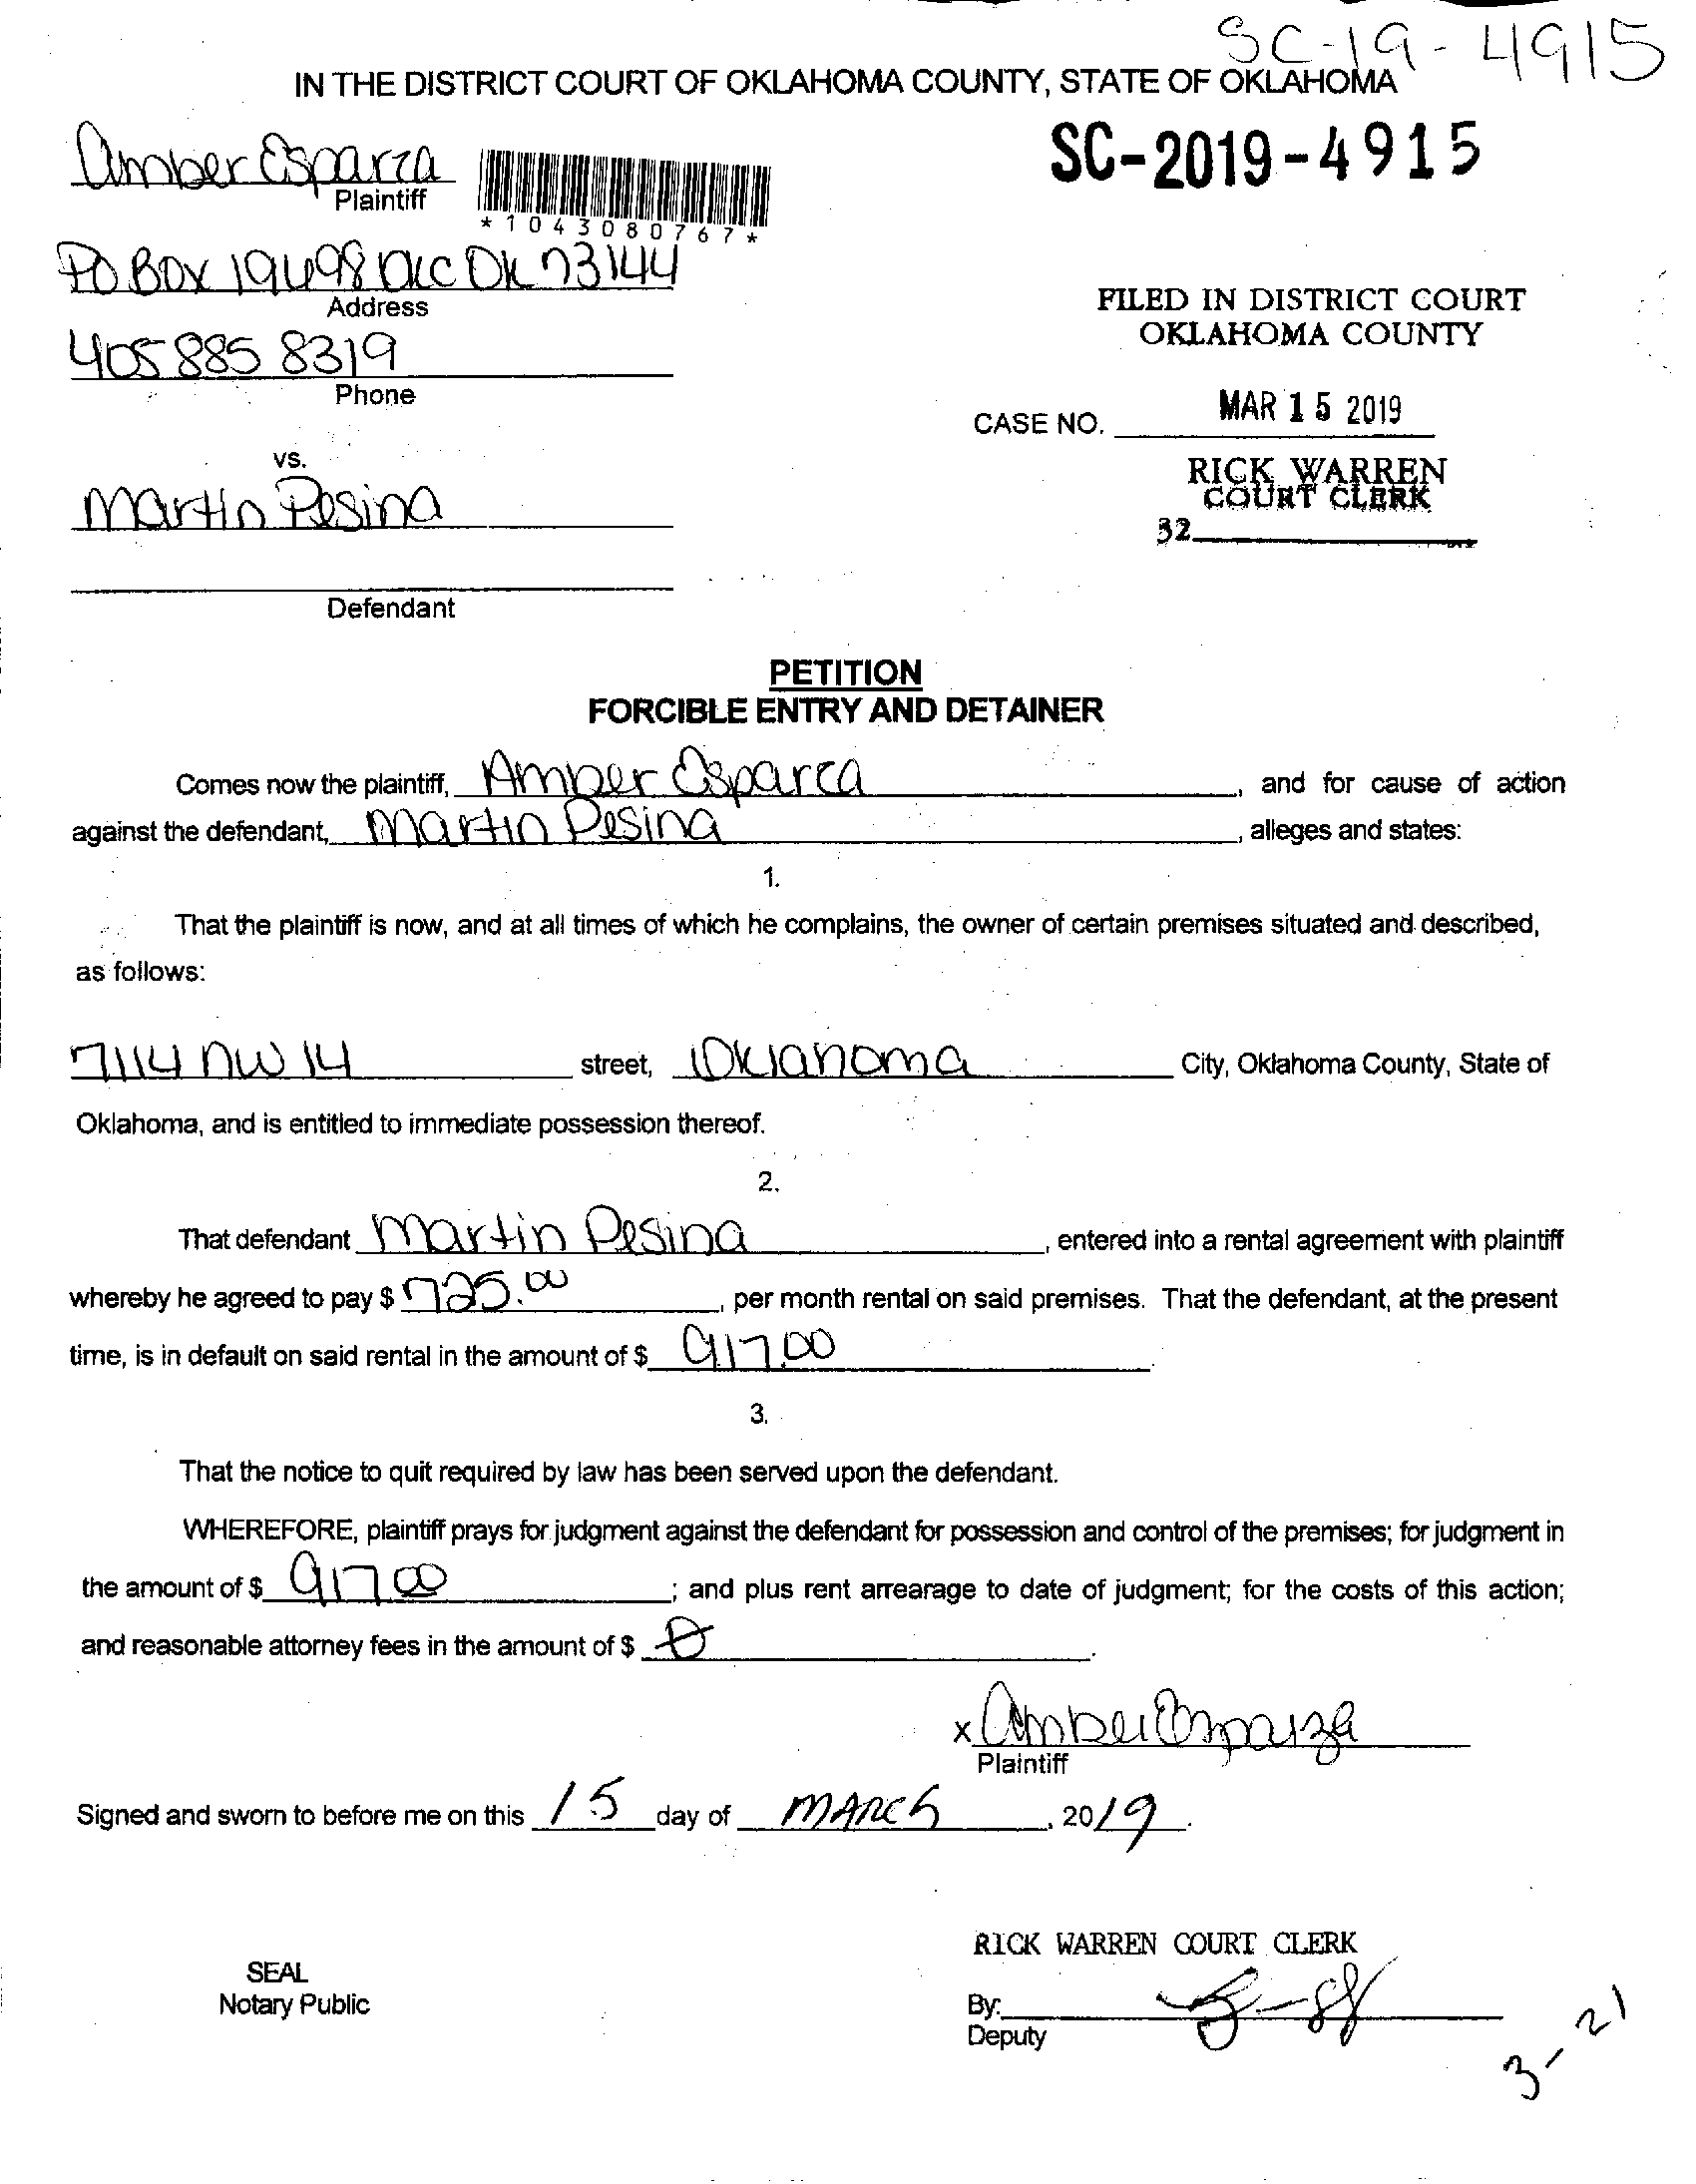 SC-19-4915
IN THE DISTRICT COURT OF OKLAHOMA COUNTY, STATE OF OKLAHOMA
Amber Esparza
SC-2019-4915
Plaintiff
*1043080767*
PO BOX 19498 OKC OK 73144
Address
FILED IN DISTRICT COURT
OKLAHOMA COUNTY
405 885 8319
Phone
MAR 15 2019
CASE NO.
vs.
RICK WARREN
COURT CLERK
Martin Pesina
32
Defendant
PETITION
FORCIBLE ENTRY AND DETAINER
Comes now the plaintiff, Amber Esparza, and for cause of action
against the defendant, Martin Pesina, alleges and states:
1.
That the plaintiff is now, and at all times of which he complains, the owner of certain premises situated and described,
as follows:
7114 NW 14 street, Oklahoma City, Oklahoma County, State of
Oklahoma, and is entitled to immediate possession thereof.
2.
That defendant Martin Pesina, entered into a rental agreement with plaintiff
whereby he agreed to pay $ 725.00, per month rental on said premises. That the defendant, at the present
time, is in default on said rental in the amount of $ 917.00.
3.
That the notice to quit required by law has been served upon the defendant.
WHEREFORE, plaintiff prays for judgment against the defendant for possession and control of the premises; for judgment in
the amount of $ 917 00; and plus rent arrearage to date of judgment; for the costs of this action;
and reasonable attorney fees in the amount of $ 0.
x Amber Esparza
Plaintiff
Signed and sworn to before me on this 15 day of MARCh, 2019.
RICK WARREN COURT CLERK
SEAL
Notary Public
By:
Deputy
3-21